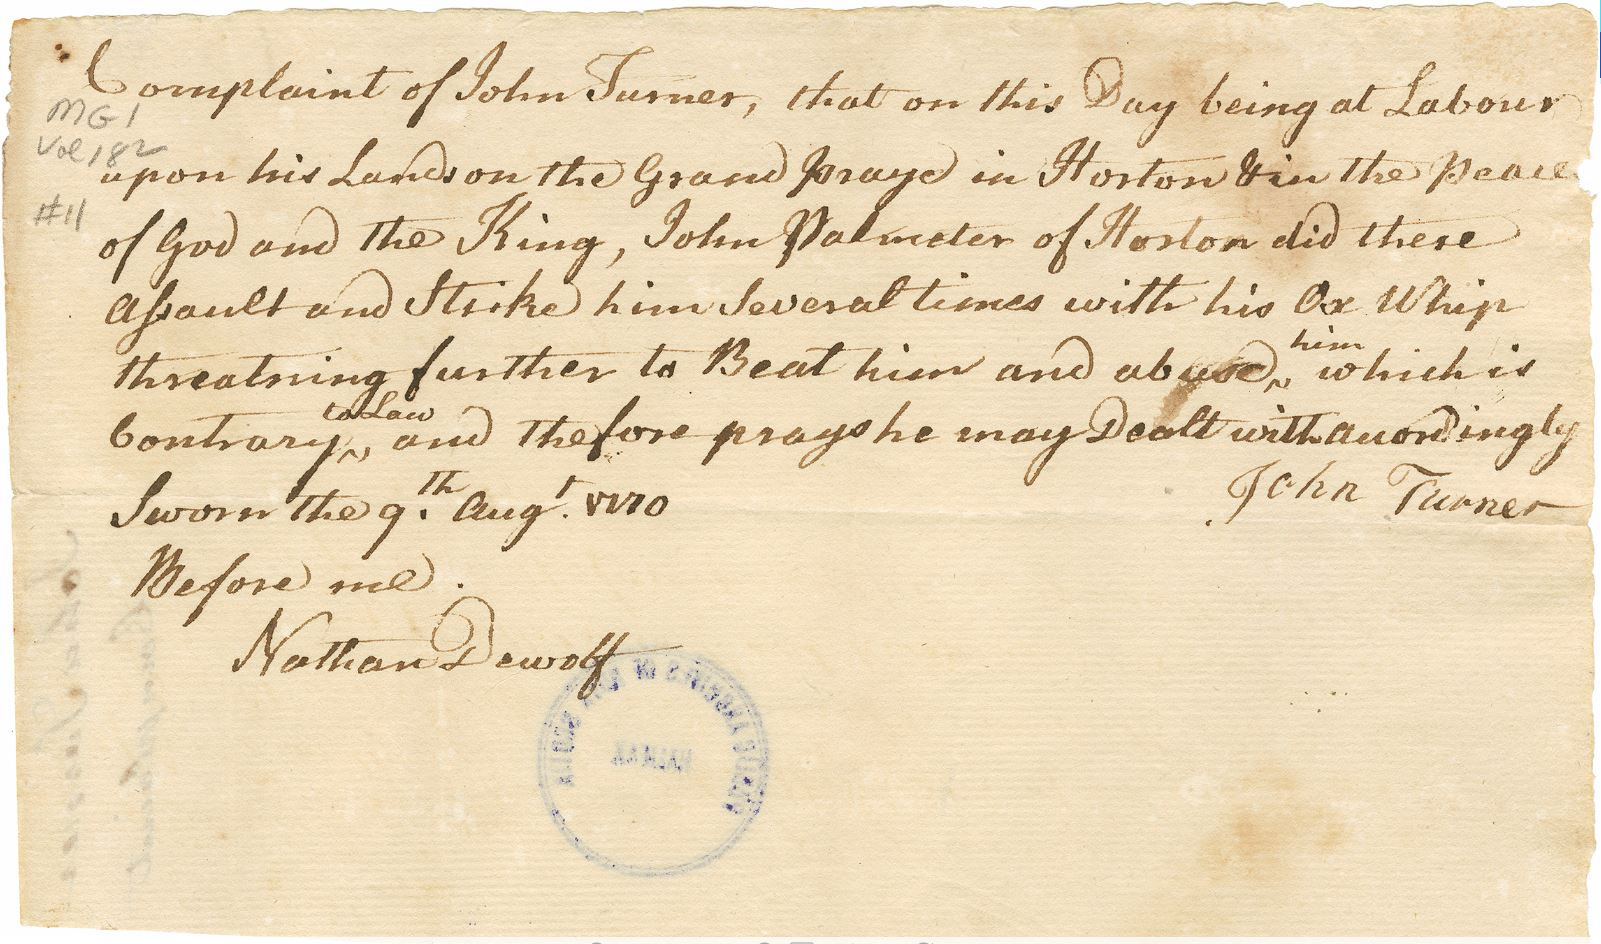 Complaint of John Turner, that on this Day being at Labour
MG1
Vol 182
upon his Lands on the Grand praye in Horton & in the Peace
#11
of God and the King, John Palmeter of Horton did there
Assault and Strike him Several times with his Ox Whip
threatning further to Beat him and abuse ^him which is
Contrary ^to Law, and thefore prays he may Dealt with accordingly
John Turner
Sworn the 9th. Augt. 1770
Before me.
Nathan Dewolf